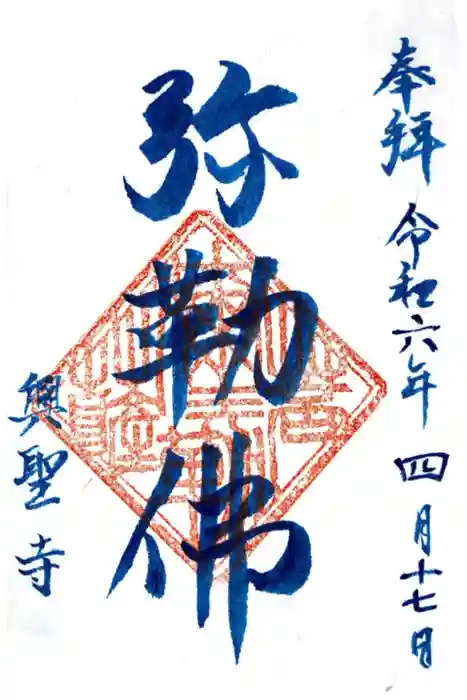 奉拜 令和六年 四月十七日
弥勒佛
興聖寺